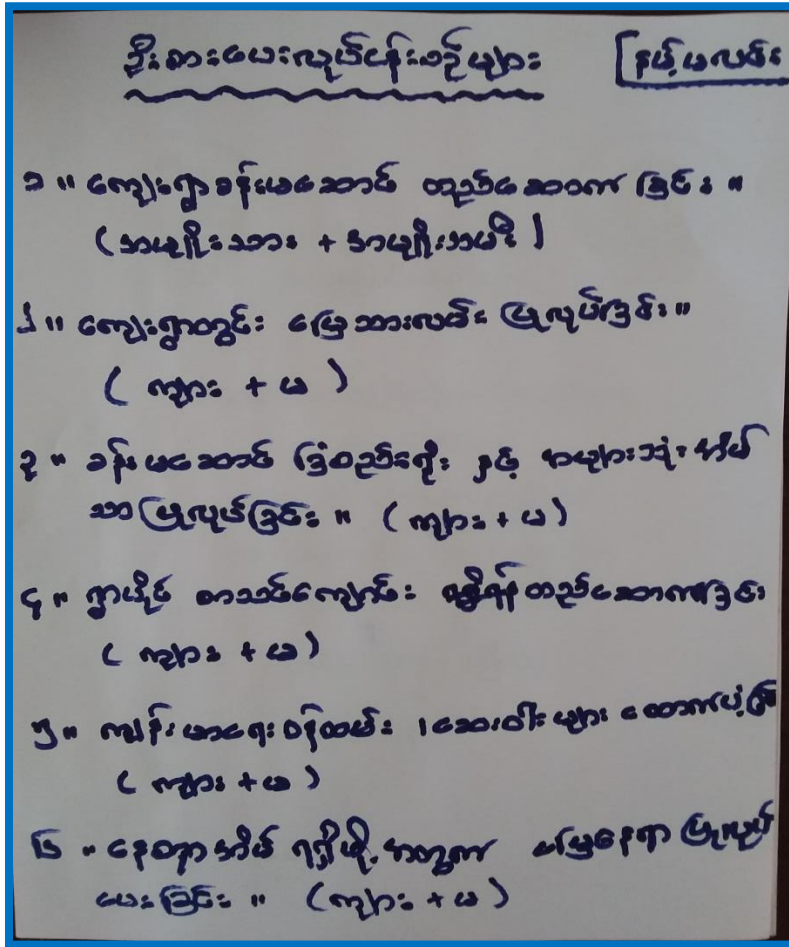 ဦးစားပေးလုပ်ငန်းစဉ်များ [နယ့်မလင်း
၁ ။ ကျေးရွာခန်းမဆောင် တည်ဆောက်ခြင်း ။
(အမျိုးသား + အမျိုးသမီး)
၂ ။ ကျေးရွာတွင်း မြေသားလမ်း ပြုလုပ်ခြင်း ။
( ကျား + မ )
၃ ။ ခန်းမဆောင် ခြံစည်းရိုး နှင့် အများသုံးအိမ်
သာပြုလုပ်ခြင်း ။ (ကျား + မ)
၄ ။ ရွာပိုင် စာသင်ကျောင်း ရရှိရန် တည်ဆောက်ခြင်း
( ကျား + မ)
၅ ။ ကျန်းမာရေးဝန်ထမ်း ၊ဆေးဝါးများ ထောက်ပံ့
( ကျား + မ )
၆ ။ နေစရာအိမ် ရရှိဖို့ အတွက် မြေနေရာ ပြုလုပ်
ပေးခြင်း ။ (ကျား + မ)